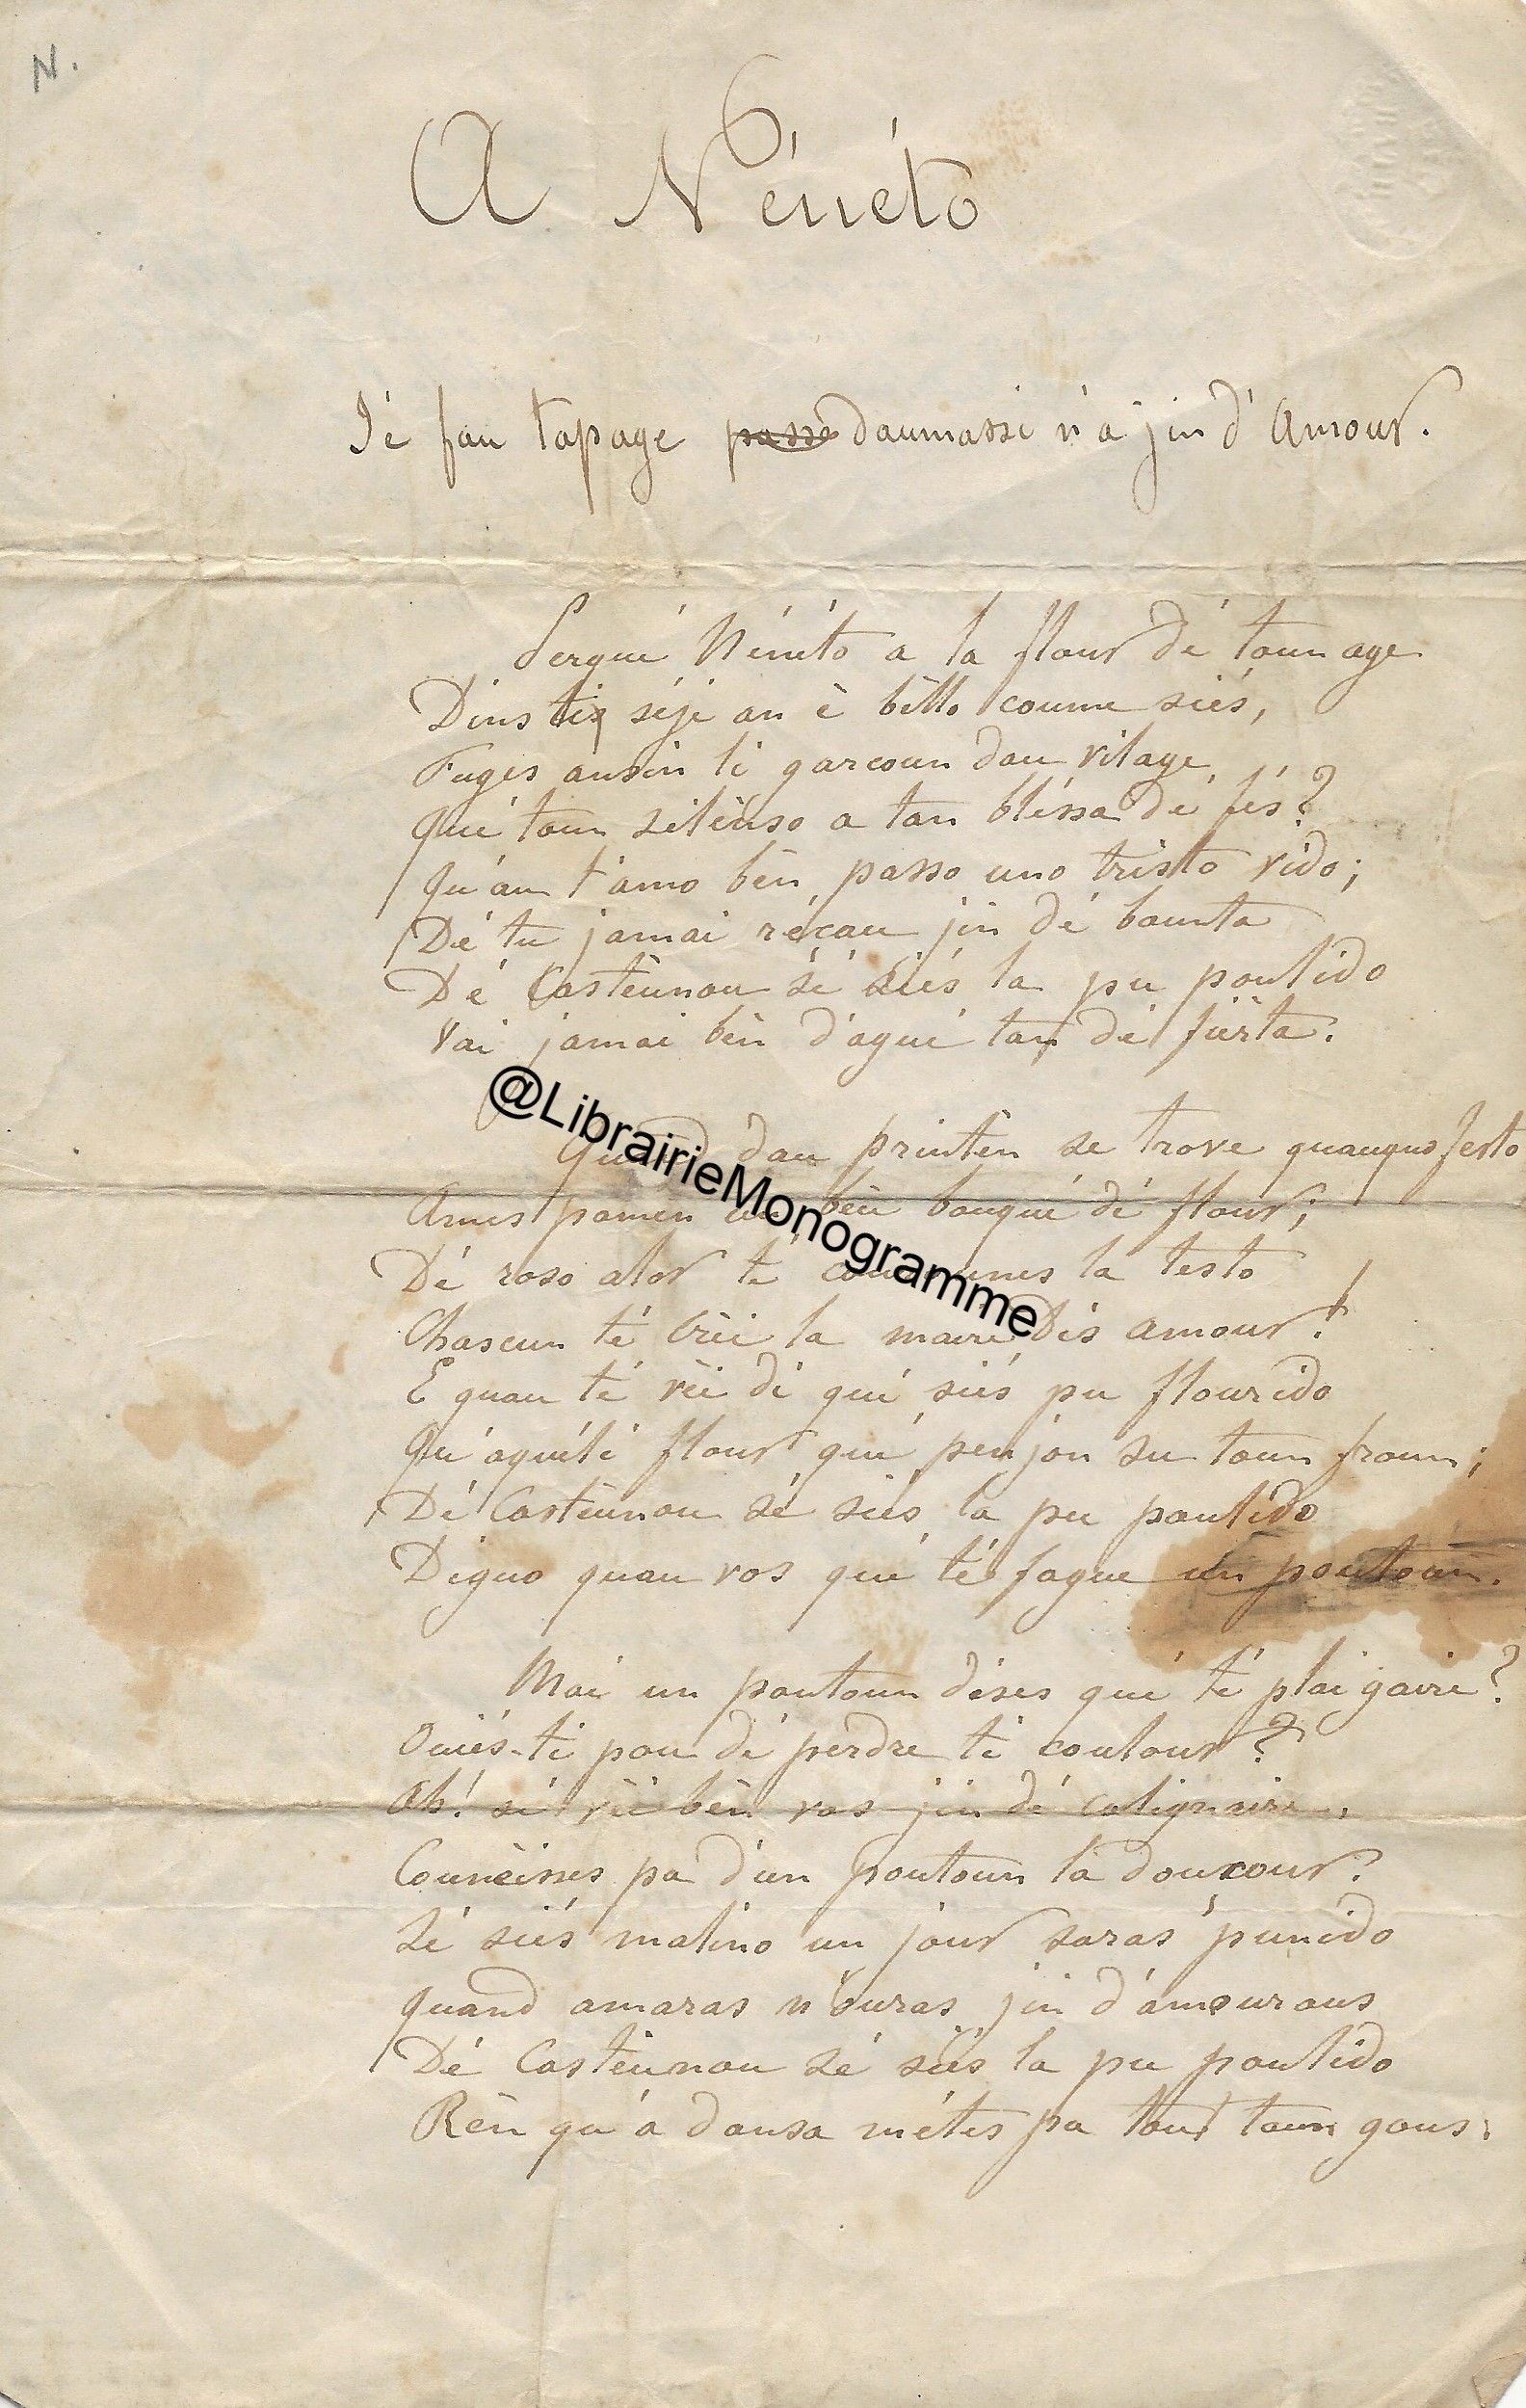 N.
A Nénéto
Ié fau tapage passo daumassi n'a jin d'Amour.
Perqué Nénéto a la flour dé toun age
Dins tis séjé an è bèllo coume siés,
Fuges ansin li garcoun dau vilage
Qué toun silènso a tan bléssa dé fés?
Qu'au t'amo bèn, passo uno tristo vido;
Dé tu jamai réçau jin dé bounta
Dé Castèunou sé siés la pu poulido
Vai jamai bèn d'agué tan dé fièrta.
@LibrairieMonogramme
dau printèn se trove quauquo festo
Ames pamen bèu bouqué dé flour;
Dé roso alor té la testo
Chascun té crèi la maire dis amour!
E quau té vèi di qué siés pu flourido
Qu'aquéli flour qué penjon su toun froun;
Dé Castèunou sé siés la pu poulido
Diguo quau vos qué té fague un poutoun.
Mai un poutoun dises qué té plai gaire?
Ouiés-ti pou dé perdre ti coulour?
Ah! sé vèi bèn vos jin dé calignaire,
Counèisses pa d'un poutoun la douçour.
Sé siés malino un jour saras punido
Quand amaras n'ouras jin d'amourous
Dé Castèunou sé siés la pu poulido
Rèn qu'à dansa métes pa tout toun gous.